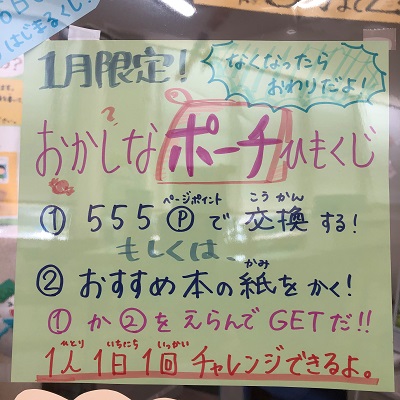 はじまるくじ!
1月限定!
なくなったら
おわりだよ!
おかしなポーチひもくじ
① 555Ⓟで交換する!
ページポイント
こうかん
もしくは、
② おすすめ本の紙をかく!
かみ
①か②をえらんでGETだ!!
1人1日1回チャレンジできるよ。
ひとり いちにち いっかい